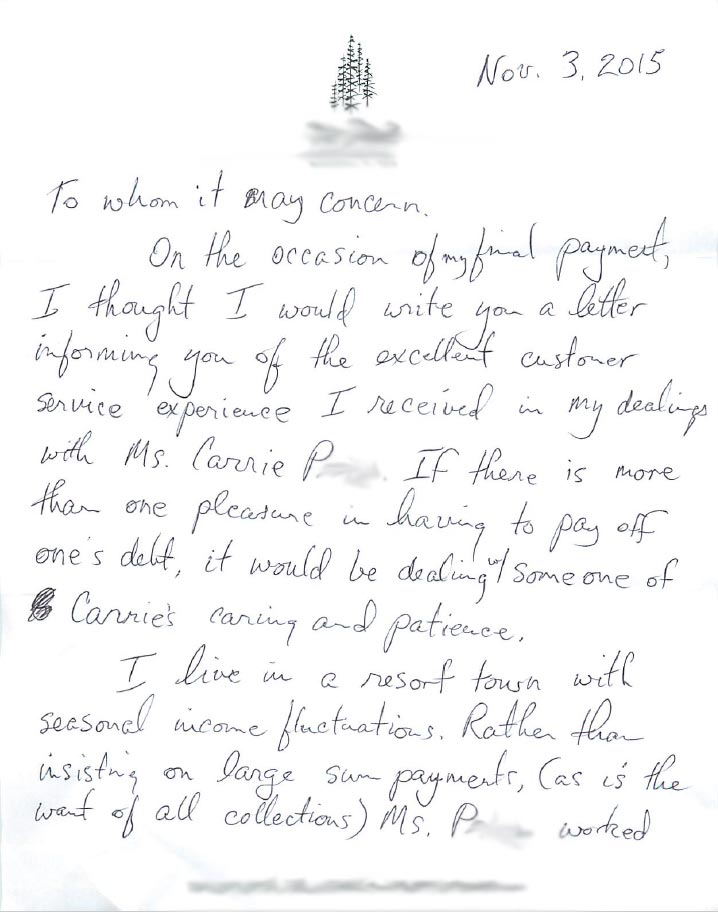 Nov. 3, 2015
To whom it may concern.
On the occasion of my final payment,
I thought I would write you a letter
informing you of the excellent customer
service experience I received in my dealings
with Ms. Carrie P. If there is more
than one pleasure in having to pay off
one's debt, it would be dealing w/ someone of
Carrie's caring and patience.
I live in a resort town with
seasonal income fluctuations. Rather than
insisting on large sum payments, (as is the
want of all collections) Ms. P worked